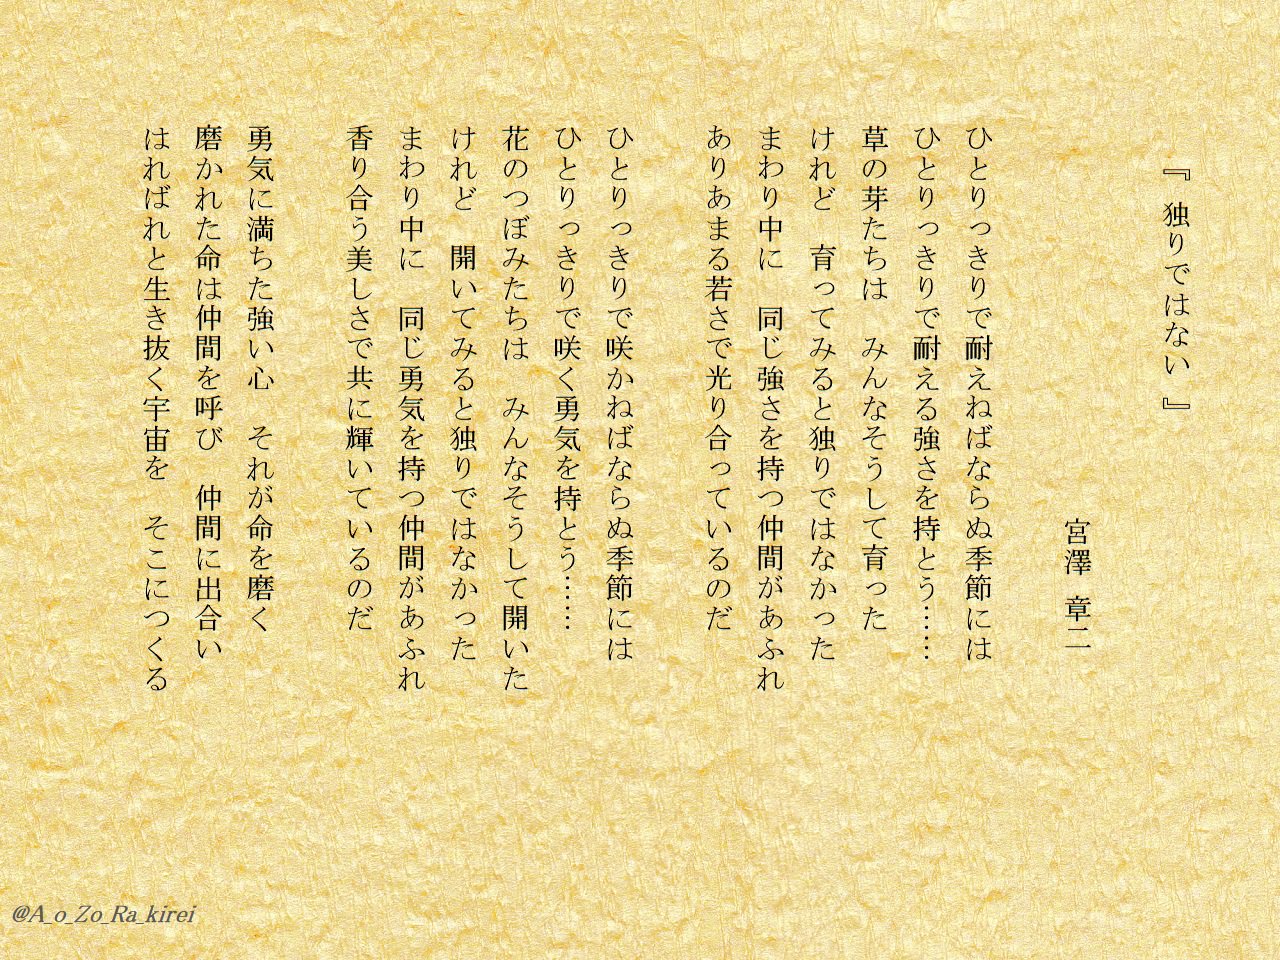 『 独りではない 』
宮澤 章二
ひとりっきりで耐えねばならぬ季節には
ひとりっきりで耐える強さを持とう……
草の芽たちは　みんなそうして育った
けれど　育ってみると独りではなかった
まわり中に　同じ強さを持つ仲間があふれ
ありあまる若さで光り合っているのだ
ひとりっきりで咲かねばならぬ季節には
ひとりっきりで咲く勇気を持とう……
花のつぼみたちは　みんなそうして開いた
けれど　開いてみると独りではなかった
まわり中に　同じ勇気を持つ仲間があふれ
香り合う美しさで共に輝いているのだ
勇気に満ちた強い心　それが命を磨く
磨かれた命は仲間を呼び　仲間に出合い
はればれと生き抜く宇宙を　そこにつくる
@A_o_Zo_Ra_kirei